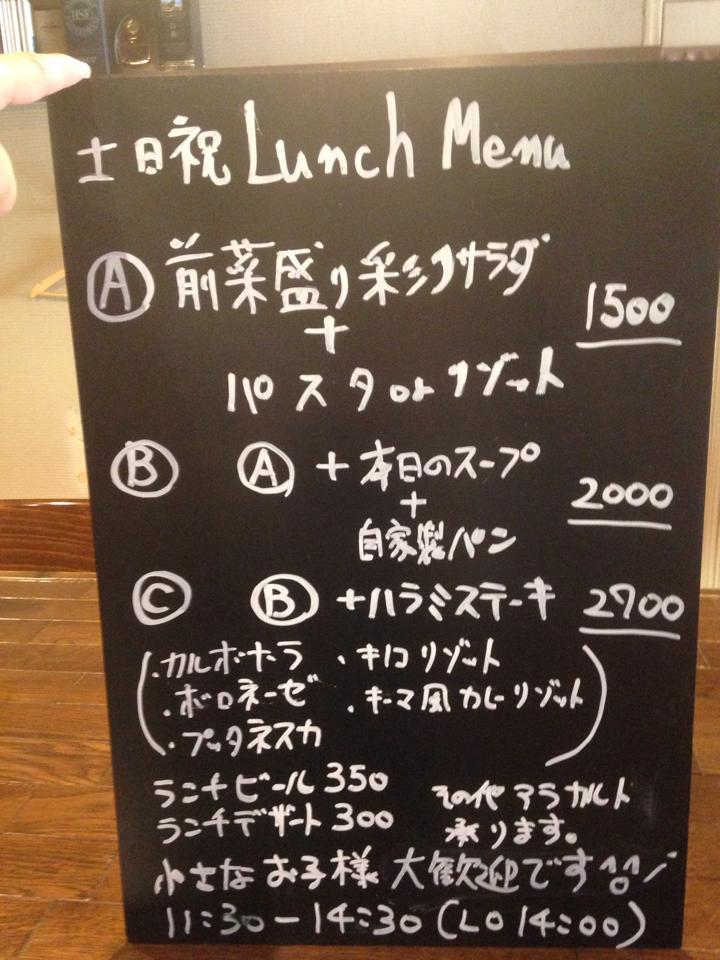 HSE
土日祝 Lunch Menu
Ⓐ 前菜盛り彩りサラダ
+
パスタ or リゾット
1500
Ⓑ Ⓐ + 本日のスープ
+
自家製パン
2000
Ⓒ Ⓑ +ハラミステーキ 2700
(・カルボナーラ ・キノコリゾット
・ボロネーゼ ・キーマ風カレーリゾット)
・プッタネスカ
ランチビール 350
ランチデザート 300
その他アラカルト
承ります。
小さなお子様 大歓迎です^o^/
11:30-14:30 (LO 14:00)